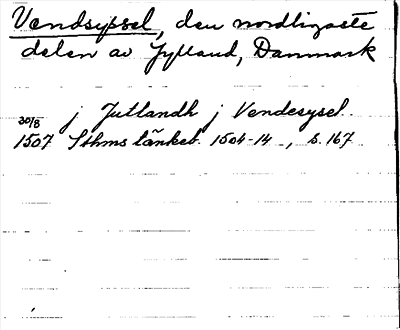 Vendsyssel, den nordligaste
delen av Jylland, Danmark
30/8 j Jutlandh j Vendesysel.
1507 Sthms tänkeb. 1504-14, s. 167